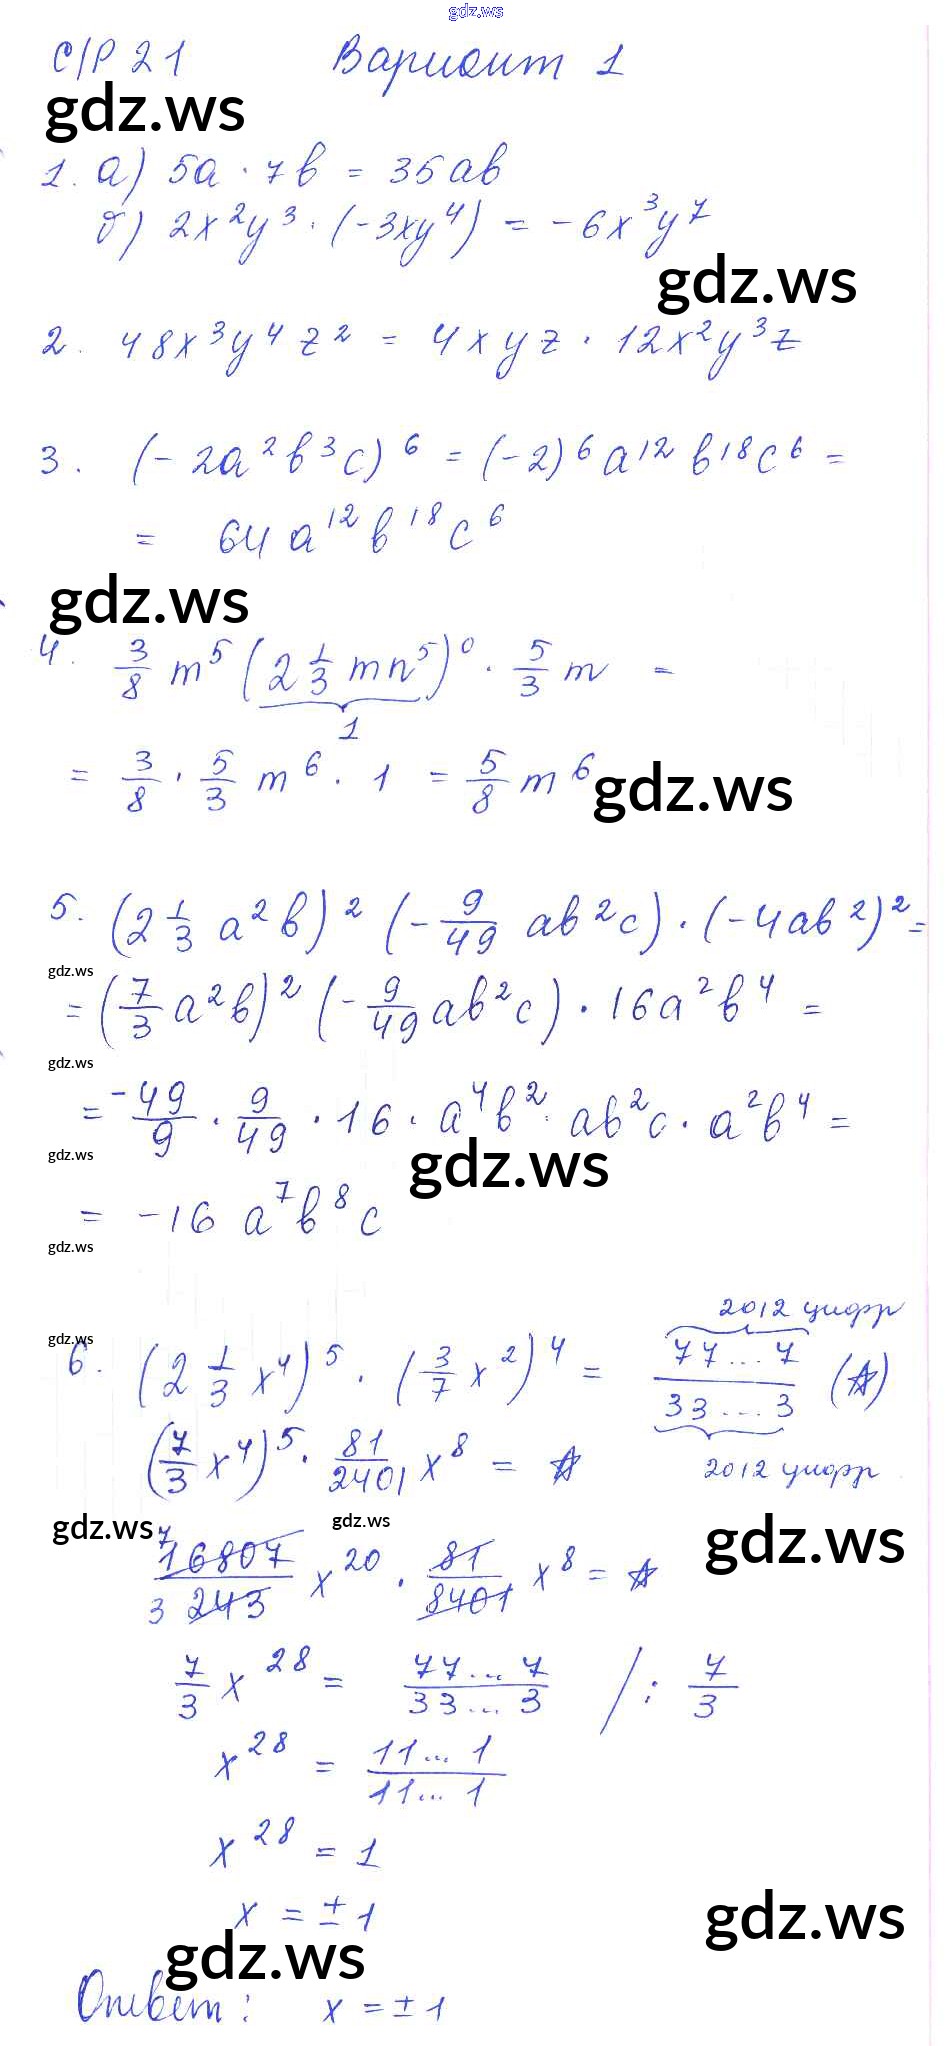 gdz.ws
С/Р 21 Вариант 1
gdz.ws
1. а) 5a · 7b = 35ab
б) 2x²y³ · (-3xy⁴) = -6x³y⁷
gdz.ws
2. 48x³y⁴z² = 4xyz · 12x²y³z
3. (-2a²b³c)⁶ = (-2)⁶a¹²b¹⁸c⁶ =
= 64a¹²b¹⁸c⁶
gdz.ws
4. 3/8 m⁵ (2 1/3 mn⁵)⁰ · 5/3 m =
1
= 3/8 · 5/3 m⁶ · 1 = 5/8 m⁶
gdz.ws
5. (2 1/3 a²b)² (-9/49 ab²c) · (-4ab²)² =
gdz.ws
= (7/3 a²b)² (-9/49 ab²c) · 16a²b⁴ =
gdz.ws
= -49/9 · 9/49 · 16 · a⁴b² · ab²c · a²b⁴ =
gdz.ws
gdz.ws
= -16 a⁷b⁸c
gdz.ws
2012 цифр
gdz.ws
6. (2 1/3 x⁴)⁵ · (3/7 x²)⁴ = 77...7/33...3 (☆)
2012 цифр
(7/3 x⁴)⁵ · 81/2401 x⁸ = ☆
gdz.ws
gdz.ws
gdz.ws
7
16807/243 x²⁰ · 81/8401 x⁸ = ☆
3
7/3 x²⁸ = 77...7/33...3 / : 7/3
x²⁸ = 11...1/11...1
x²⁸ = 1
x = ±1
gdz.ws
gdz.ws
Ответ: x = ±1